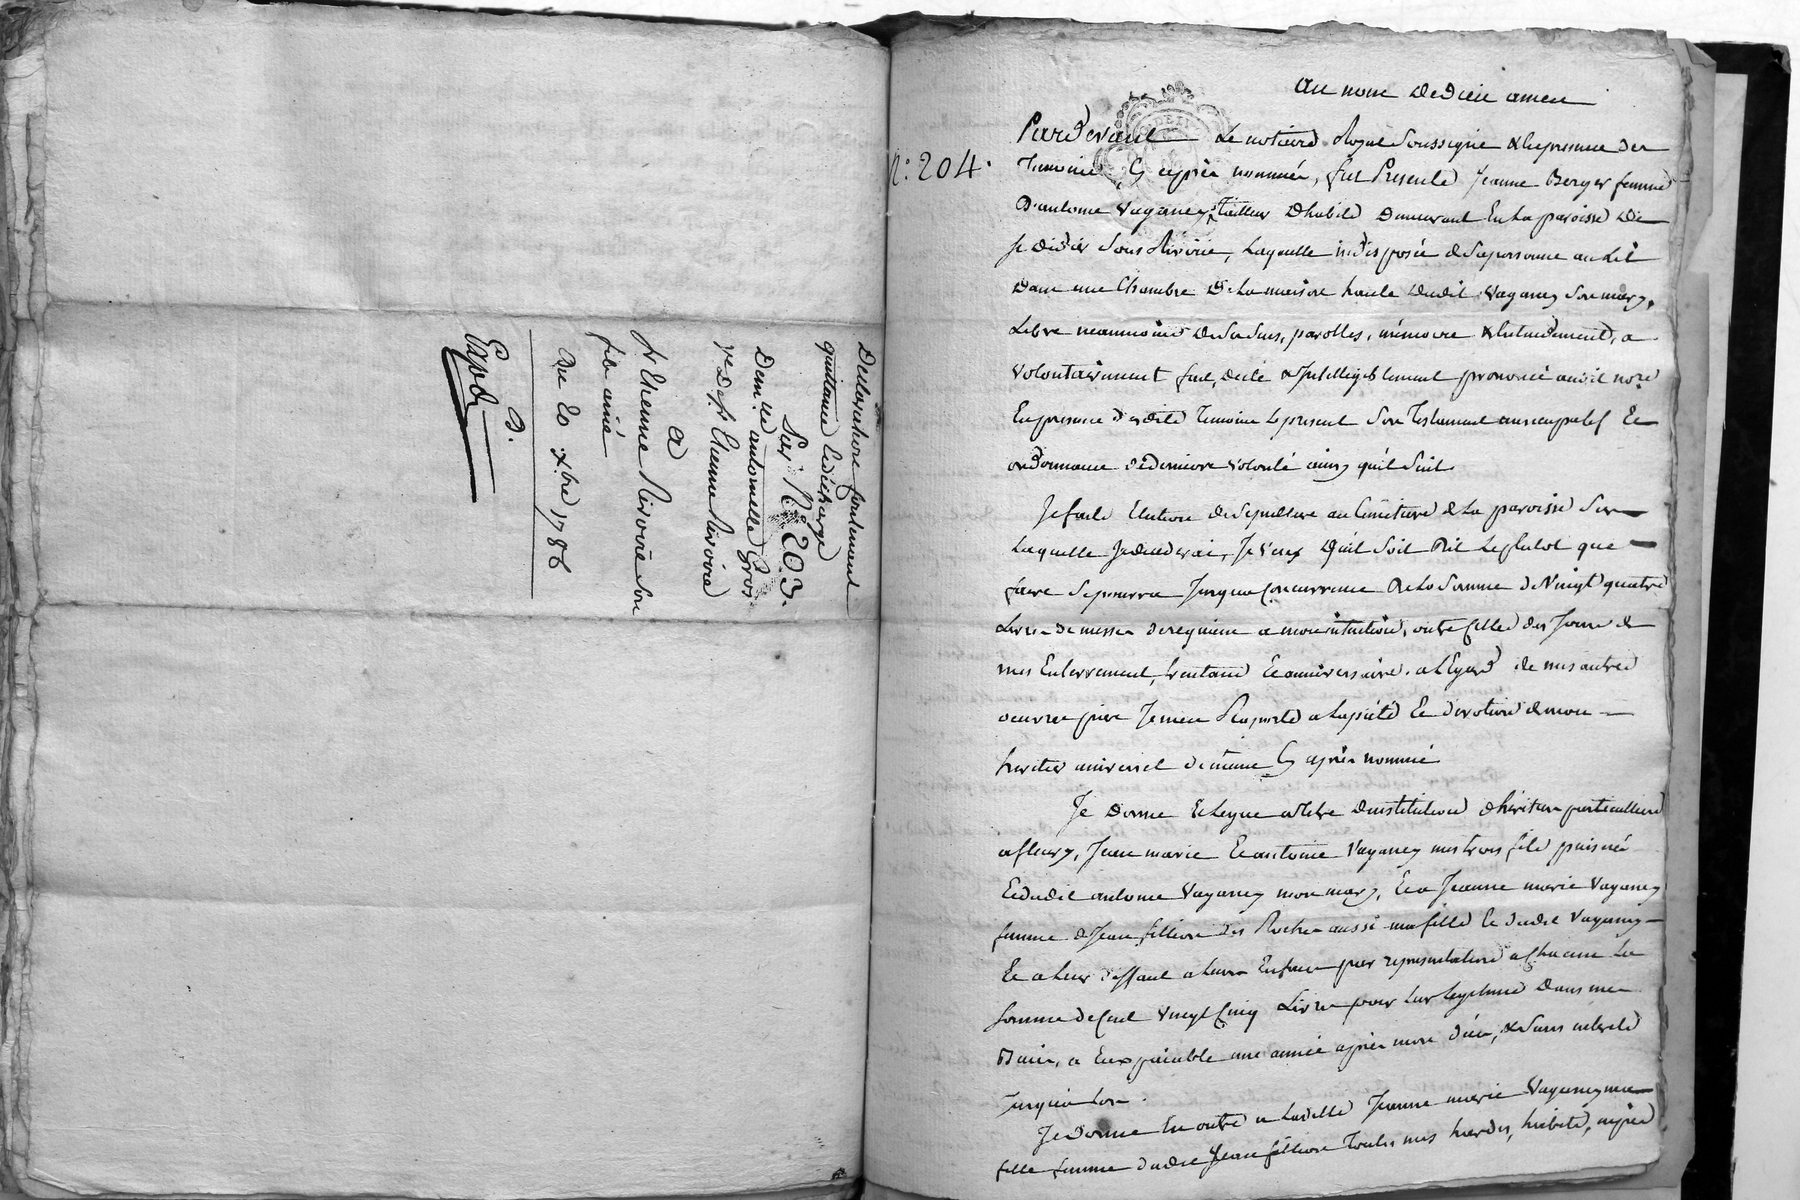 Declaration foulement
quittance Et décharge
Sur N° 203.
Dem.lle antoinette Gros
v.e De s.r Etienne Rivoire
a
s.r Etienne Rivoire Son
fils ainé
Du 20 Xbre 1786
D.
Expd
Au nom De Dieu amen
N.° 204.
Pardevant Le notaire Royal Soussigné & En presence des
Temoins Cy après nommés, fut Presente Jeanne Berger femme
D'antoine Vaganey, tailleur D'habits Demeurant En La paroisse De
St Didier Sous Riverie, Laquelle indisposée de Sa personne au Lit
Dans une Chambre De La maison haute Dudit Vaganey Son mary,
Libre neanmoins De Ses Sens, parolles, mémoire & Entendement, a
volontairement fait, dicté & Intelligiblement prononcé audit no.re
En presence Desdits Temoins Le present Son Testament nuncupatif Et
ordonnance De Derniere volonté ainsy qu'il Suit
Je fais Election De Sepulture au Cimetiere de La paroisse Sur
Laquelle Je decederai, Je veux Qu'il Soit Dit Le plutot que
faire Se pourra Jusqua Concurrence De La Somme De Vingt quatre
Livres De messes De requiem a mon intention, outre Celles des Jours de
mes Enterrement, quarantaine Et anniversaire. a L'Egard de mes autres
oeuvres pies Je m'en Raporte a La piété Et Devotion de mon
heritier universel De meme Cy après nommé
Je Donne Et Legue a titre D'institution d'héritiers particuliers
a fleury, Jean marie Et antoine Vaganey mes trois fils puisnés
Et dudit antoine Vaganey mon mary, Et a Jeanne marie Vaganey
femme de Jean fillion Des Roches aussi ma fille Et dudit Vaganey
Et a Leur deffaut a Leurs Enfans par representation a Chacun La
Somme de Cent Vingt Cinq Livres pour Leur Legitime Dans mes
Biens, a Eux paiable une année après mon décès, & Sans interets
Jusqu'a Lors.
Je Donne En outre a Ladite Jeanne marie Vaganey ma
fille femme dudit Jean fillion Toutes mes hardes, habits,